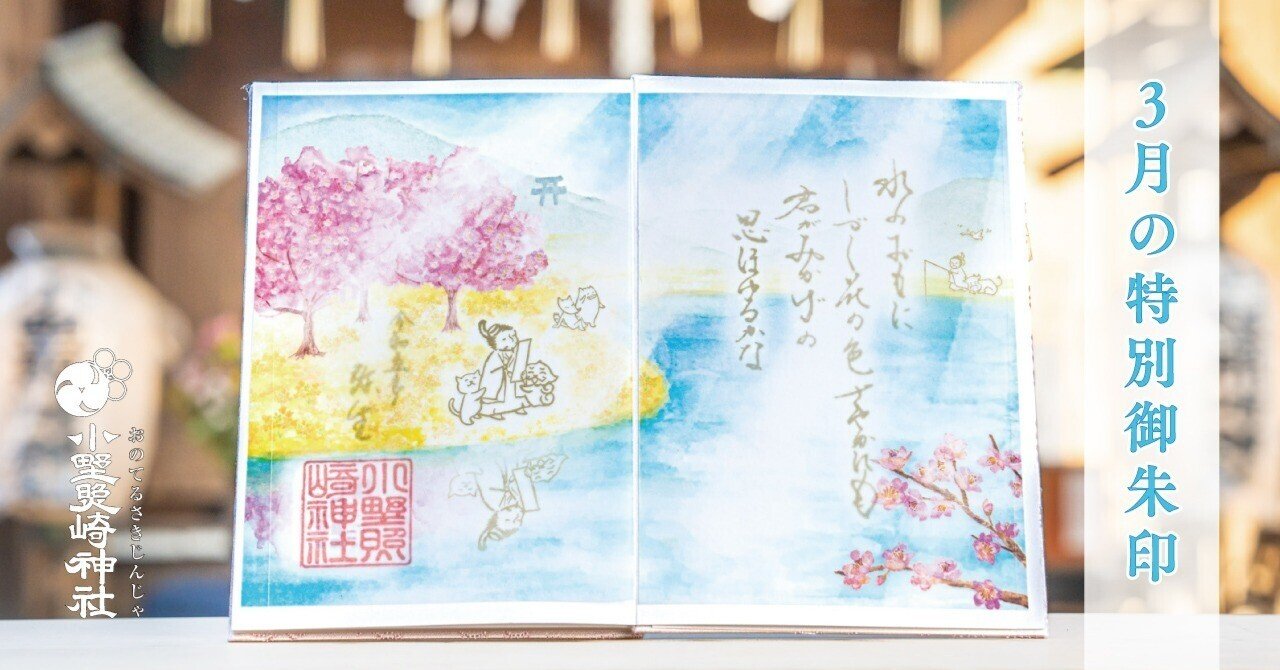 3月の特別御朱印
水のおもに
しづく花の色 さやかにも
君がみかげの
思ほゆるかな
弥生
小野照
崎神社
おのてるさきじんじゃ
小野照崎神社